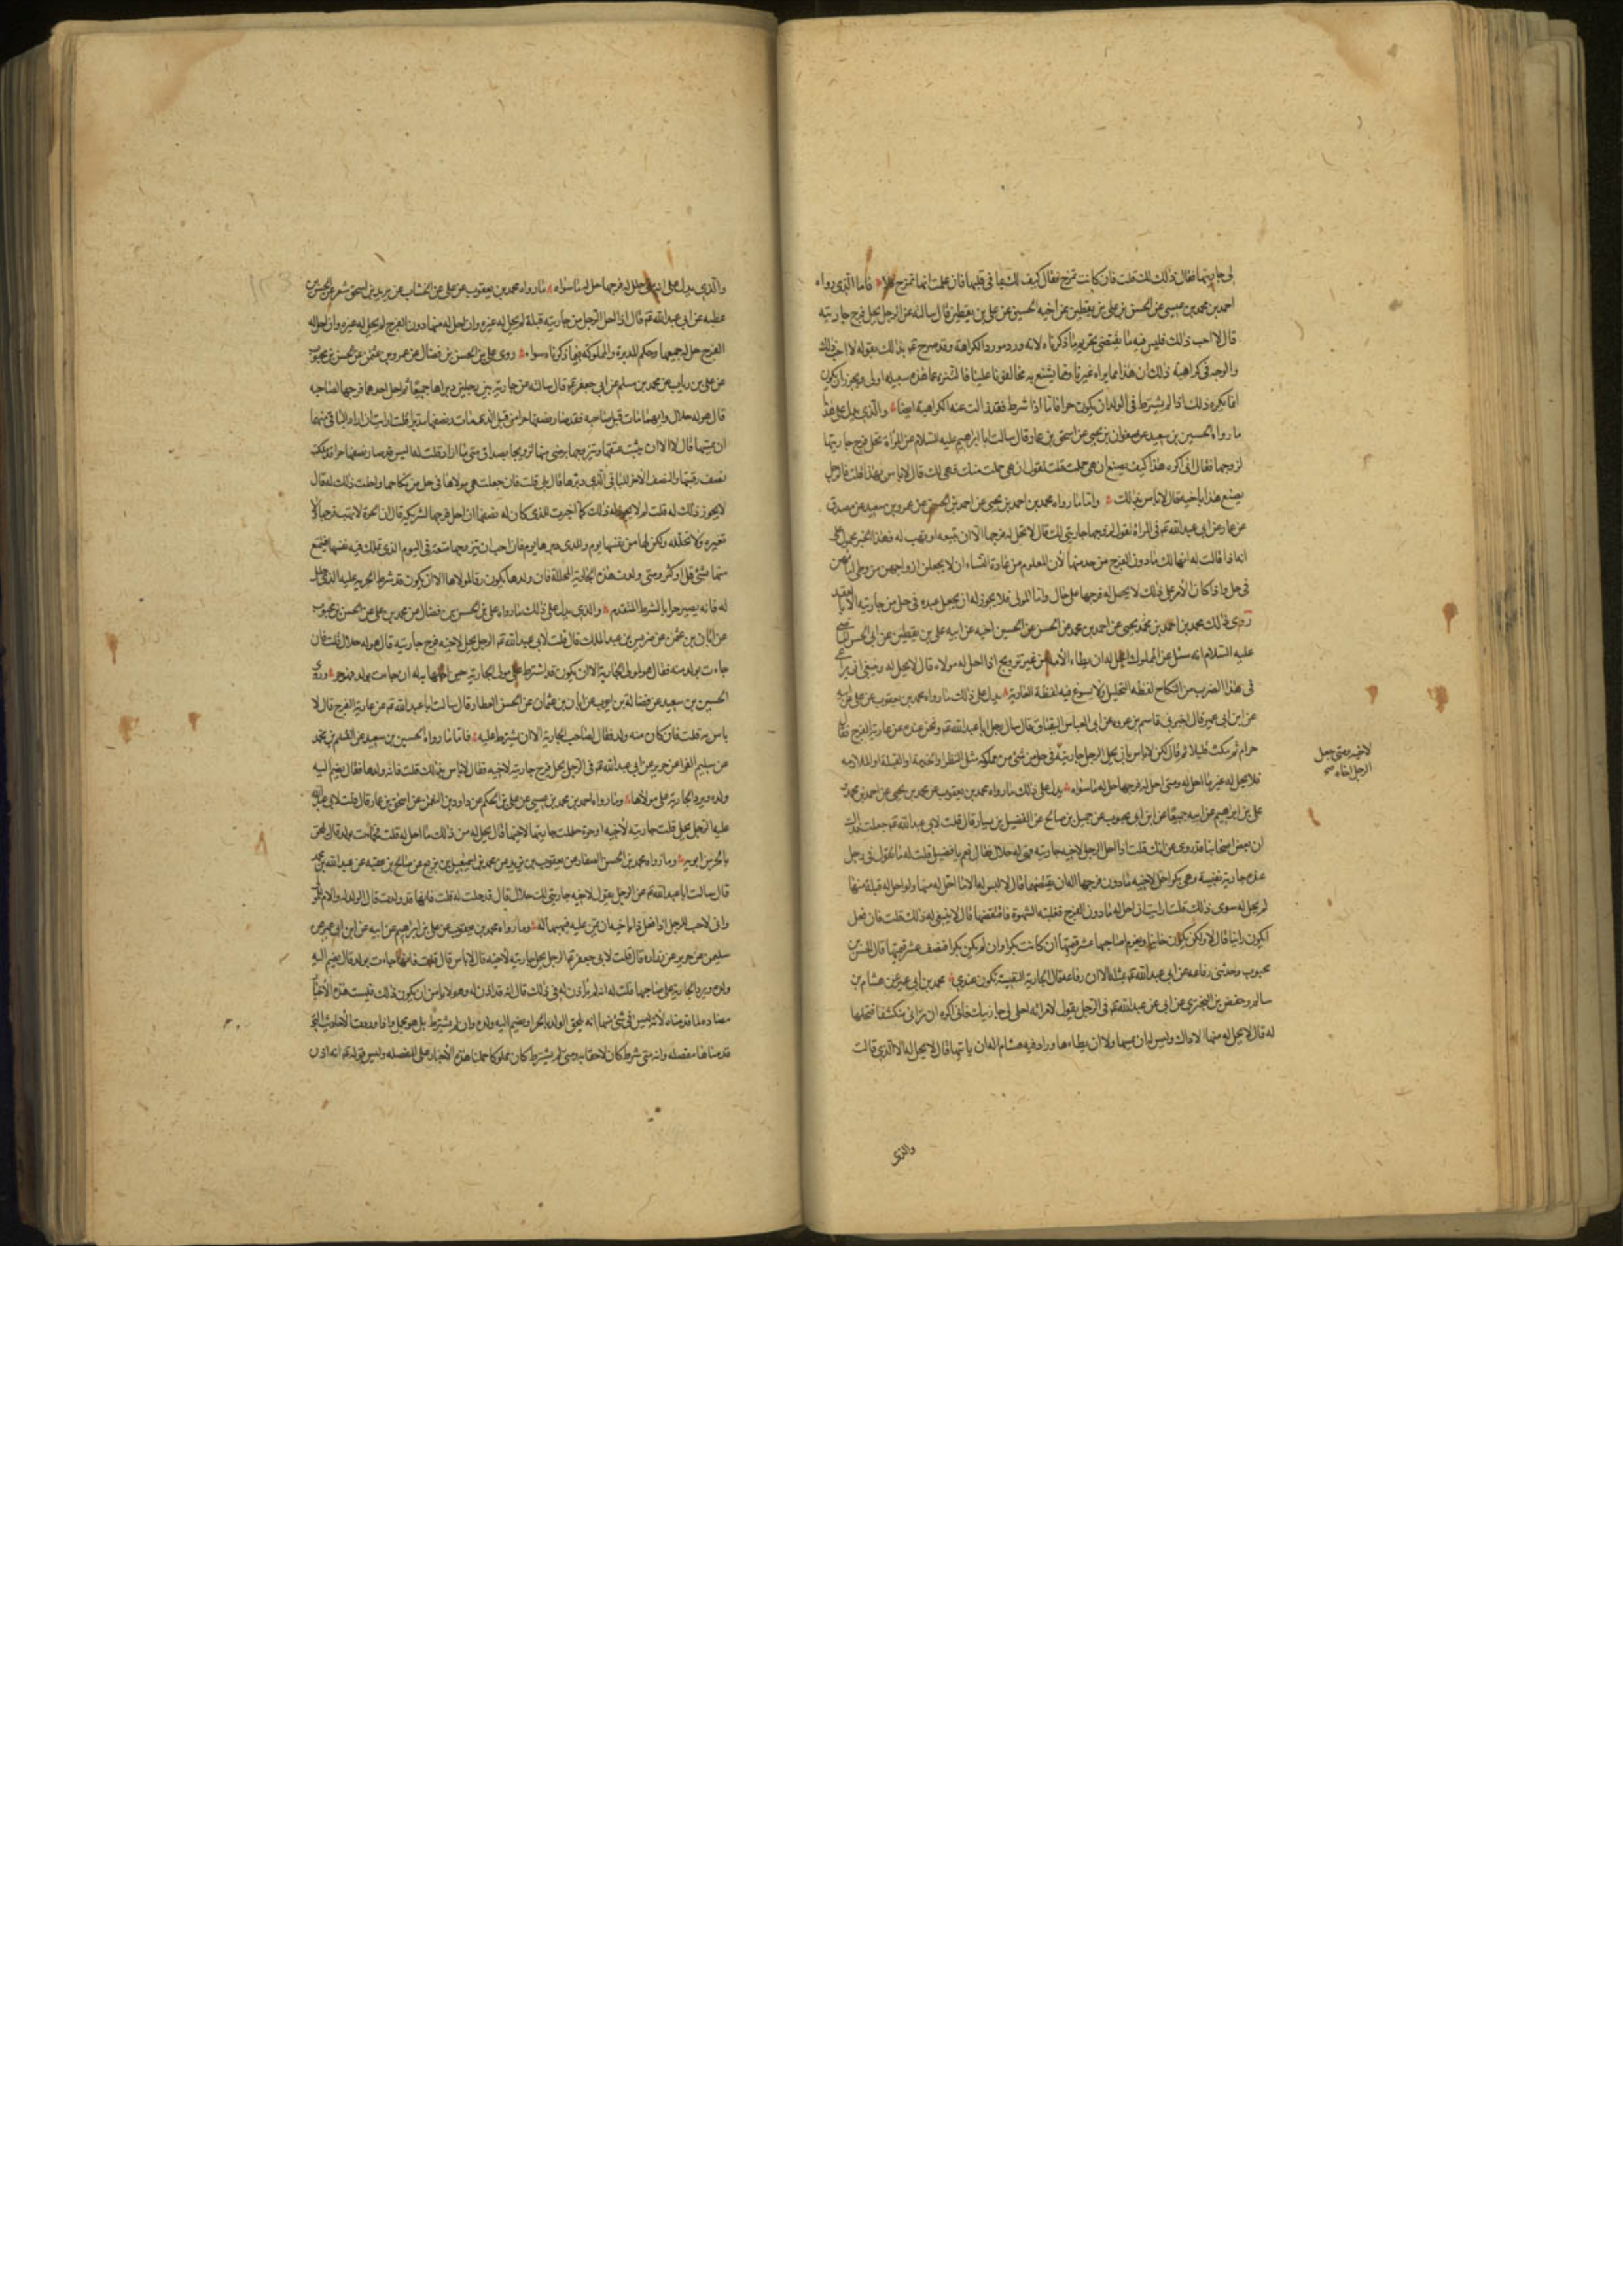 لى جاريتها فقال ذلك لك قلت فان كانت تمزح فقال كيف لك بما فى قلبها فان علمت انها تمزح فلا فاما الذى رواه
احمد بن محمد بن عيسى عن الحسن بن على بن يقطين عن اخيه الحسين عن على بن يقطين قال سالته عن الرجل يحل فرج جاريته
قال لا احب ذلك فليس فيه ما يقتضى تحريم ما ذكرناه لانه ورد مورد الكراهة وقد صرح بذلك بقوله لا احب ذلك
والوجه فى كراهية ذلك ان هذا مما يراه غيرنا ومما يشنع به مخالفونا علينا فالتنزه عما هذه سبيله اولى ويجوز ان يكون
انما يكره ذلك اذا لم يشترط فى الولد ان يكون حرا فاما اذا شرط فقد زالت عنه الكراهية ايضا والذى يدل على هذا
ما رواه الحسين بن سعيد عن صفوان بن يحيى عن اسحق بن عمار قال سالت ابا ابراهيم عليه السلام عن المراة تحل فرج جاريتها
لزوجها فقال انى اكره هذا كيف يصنع ان هى حملت قلت تقول ان هى حملت منك فهى لك قال لا باس بهذا قلت فالرجل
يصنع هذا باخيه قال لا باس بذلك واما ما رواه محمد بن احمد بن يحيى عن احمد بن الحسن عن عمرو بن سعيد عن مصدق
عن عمار عن ابى عبد الله فى المراة تقول لزوجها جاريتى لك قال لا تحل له فرجها الا ان تبيعه او تهب له فهذا الخبر محمول على
انه اذا قالت له انها لك ما دون الفرج من خدمتها لان المعلوم من عادة النساء ان لا يجعلن ازواجهن من وطى امائهن
فى حل واذا كان الامر على ذلك لا يحصل له فرجها على حال واما المولى فلا يجوز له ان يجعل عبده فى حل من جاريته الا بالعقد
روى ذلك محمد بن احمد بن محمد بن يحيى عن احمد بن محمد عن الحسن عن الحسين اخيه عن ابيه على بن يقطين عن ابى الحسن الماضى
عليه السلام انه سئل عن المملوك ايحل له ان يطاء الامة من غير تزويج اذا احل له مولاه قال لا يحل له وينبغى ان يراعى
فى هذا الضرب من النكاح لفظه التحليل ولا يسوغ فيه لفظة العارية يدل على ذلك ما رواه محمد بن يعقوب عن على عن ابيه
عن ابن ابى عمير قال اخبرنى قاسم بن عروه عن ابى العباس البقباق قال سال رجل ابا عبد الله ونحن عنده عن عارية الفرج فقال
حرام ثم مكث قليلا ثم قال لكن لا باس بان يحل الرجل جاريته فى حل من شئ من مملوكه مثل النظر او الخدمة او القبلة او الملامسه
فلا يحل له غير ما احل له ومتى احل له فرجها حل له ما سواه يدل على ذلك ما رواه محمد بن يعقوب عن محمد بن يحيى عن احمد بن محمد
على بن ابراهيم عن ابيه جميعا عن ابن محبوب عن جميل بن صالح عن الفضيل بن يسار قال قلت لابى عبد الله جعلت فداك
ان بعض اصحابنا قد روى عنك انك قلت اذا احل الرجل لاخيه جاريته فهى له حلال فقال نعم يا فضيل قلت له ما تقول فى رجل
عنده جارية نفيسة وهى بكر احل لاخيه ما دون فرجها اله ان يقتضها قال لا ليس له الا ما احل له منها ولو احل له قبلة منها
لم يحل له سوى ذلك قلت ارايت ان احل له ما دون الفرج فغلبته الشهوة فاقتضها قال لا ينبغى له ذلك قلت فان فعل
ايكون زانيا قال لا ولكن يكون خاينا ويغرم لصاحبها عشر قيمتها ان كانت بكرا وان لم يكن بكرا فنصف عشر قيمتها قال الحسن بن
محبوب وحدثنى رفاعه عن ابى عبد الله مثله الا ان رفاعة قال الجارية النفيسة تكون عندى محمد بن ابى عمير عن هشام بن
سالم وحفص بن البخترى عن ابى عبد الله فى الرجل يقول لامراته احلى لى جاريتك فانى اكره ان ترانى منكشفا فتحلها
له قال لا يحل له منها الا ذاك وليس له ان يمسها ولا ان يطاءها وزاد فيه هشام اله ان ياتيها قال لا يحل له الا الذى قالت
والذى
لاخيه ومتى جعل
الرجل اخاه صح
والذى يدل على انه متى احل له فرجها حل له ما سواه ما رواه محمد بن يعقوب عن على عن الخشاب عن يزيد بن اسحق شعر عن الحسن بن
عطيه عن ابى عبد الله قال اذا احل الرجل من جاريته قبلة لم يحل له غيره وان احل له منها دون الفرج لم يحل له غيره وان احل له
الفرج حل له جميعها وحكم المدبرة والمملوكة فيما ذكرناه سواء روى على بن الحسن بن فضال عن عمرو بن عثمن عن الحسن بن محبوب
عن على بن رياب عن محمد بن مسلم عن ابى جعفر قال سالته عن جارية بين رجلين دبراها جميعا ثم احل احدهما فرجها لصاحبه
قال هو له حلال وايهما مات قبل صاحبه فقد صار نصفها حرا من قبل الذى مات ونصفها مدبرا قلت ارايت ان اراد الباقى منهما
ان يمسها قال لا الا ان يثبت عتقها ويتزوجها برضى منها تزويجا بصداق متى ما اراد قلت له اليس قد صار نصفها حرا قد ملكت
نصف رقبتها والنصف الاخر للباقى الذى دبرها قال بلى قلت فان جعلت هى مولاها فى حل من نكاحها واحلت ذلك له قال
لا يجوز ذلك له قلت لم لا يجوز له ذلك كما اجزت للذى كان له نصفها ان احل فرجها لشريكه قال ان الحرة لا تهب فرجها ولا
تعيره ولا تحلله ولكن لها من نفسها يوم وللذى دبرها يوم فان احب ان يتزوجها متعة فى اليوم الذى تملك فيه نفسها فيتمتع
منها بشئ قل او كثر ومتى ولدت هذه الجارية المحللة فان ولدها يكون رقا لمولاها الا ان يكون قد شرط الحرية عليه الذى حلل
له فانه يصير حرا بالشرط المتقدم والذى يدل على ذلك ما رواه على بن الحسن بن فضال عن محمد بن على عن الحسن بن محبوب
عن ابان بن عثمن عن ضريس بن عبد الملك قال قلت لابى عبد الله الرجل يحل لاخيه فرج جاريته قال هو له حلال قلت فان
جاءت بولد منه فقال هو لمولى الجارية الا ان يكون قد اشترط على مولى الجارية حين احلها له ان جاءت بولد فهو حر وروى
الحسين بن سعيد عن فضالة بن ايوب عن ابان بن عثمان عن الحسن العطار قال سالت ابا عبد الله عن عارية الفرج قال لا
باس به قلت فان كان منه ولد فقال لصاحب الجارية الا ان يشترط عليه فاما ما رواه الحسين بن سعيد عن القسم بن محمد
عن سليم الفرا عن حريز عن ابى عبد الله فى الرجل يحل فرج جاريته لاخيه فقال لا باس بذلك قلت فانه ولدها فقال يضم اليه
ولده ويرد الجارية على مولاها وما رواه احمد بن محمد بن عيسى عن على بن الحكم عن داود بن النعمن عن اسحق بن عمار قال قلت لابى عبد الله
عليه الرجل يحل جاريته لاخيه او حرة حللت جاريتها لاخيها قال يحل له من ذلك ما احل له قلت فجاءت بولد قال يلحق
بالحر من ابويه وما رواه محمد بن الحسن الصفار عن يعقوب بن يزيد عن محمد بن اسمعيل بن بزيع عن صالح بن عقبه عن عبد الله بن محمد
قال سالت ابا عبد الله عن الرجل يقول لاخيه جاريتى لك حلال قال قد حلت له قلت فانها قد ولدت قال الولد له والام للمولى
وانى لاحب للرجل اذا فعل ذا باخيه ان يمن عليه فيهبها له وما رواه محمد بن يعقوب عن على بن ابراهيم عن ابيه عن ابن ابى عمير عن
سليمن عن حريز عن زراره قال قلت لابى جعفر الرجل يحل جاريته لاخيه قال لا باس قال قلت فانها جاءت بولد قال يضم اليه
ولده ويرد الجارية على صاحبها قلت له انه لم ياذن له فى ذلك قال انه قد اذن له وهو لا يامن ان يكون ذلك فليست هذه الاخبار
مضادة لما قدمناه لانه ليس فى شئ منها انه يلحق الولد بالحر او يضم اليه ولده وان لم يشترط بل هو مجمل واذا وردت الاحاديث التى
قدمناها مفصله وانه متى شرط كان لاحقا به ومتى لم يشترط كان مملوكا حملنا هذه الاخبار على المفصله وليس قوله انه اذن